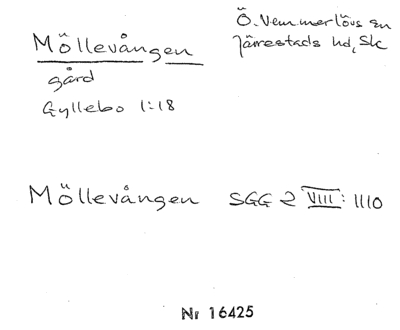 Möllevången
Ö. Vemmerlövs sn
Järrestads hd, Sk
gård
Gyllebo 1:18
Möllevången SGG 2 VIII: 1110
Nr 16425